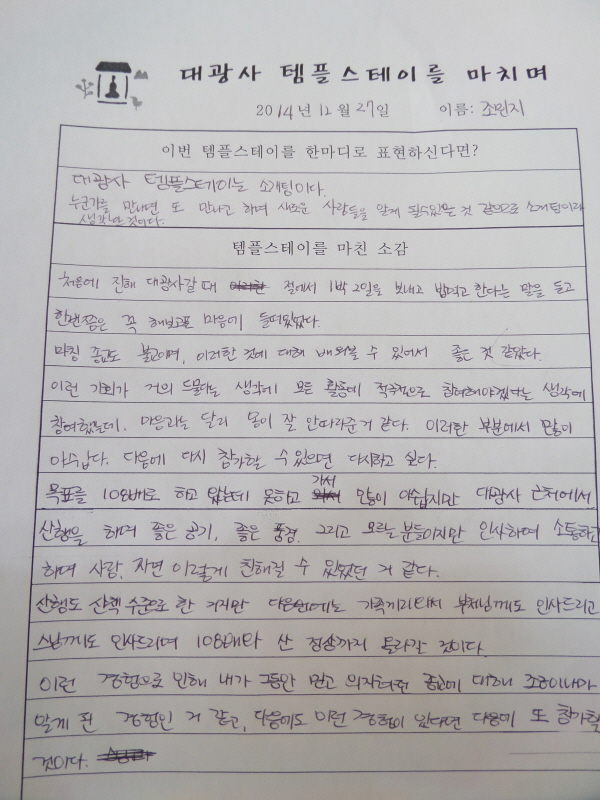 대광사 템플스테이를 마치며
2014년 12월 27일 이름: 조민지
이번 템플스테이를 한마디로 표현하신다면?
대광사 템플스테이는 소개팅이다.
누군가를 만나면 또 만나고 하며 새로운 사람들을 알게 될수있는 것 같으므로 소개팅이라
생각한 것이다.
템플스테이를 마친 소감
처음에 진해 대광사갈 때 절에서 1박 2일을 보내고 밥먹고 한다는 말을 듣고
한번쯤은 꼭 해보고픈 마음에 들떠있었다.
마침 종교도 불교이며, 이러한 것에 대해 배워볼 수 있어서 좋은 것 같았다.
이런 기회가 거의 드물다는 생각에 모든 활동에 적극적으로 참여해야겠다는 생각에
참여했는데, 마음과는 달리 몸이 잘 안따라준거 같다. 이러한 부분에서 많이
아쉽다. 다음에 다시 참가할 수 있으면 다시하고 싶다.
목표를 108배로 하고 왔는데 못하고 가서 많이 아쉽지만 대광사 근처에서
산행을 하며 좋은 공기, 좋은 풍경, 그리고 모르는 분들이지만 인사하며 소통하고
하며 사람, 자연 이렇게 친해질 수 있었던 거 같다.
산행도 산책 수준으로 한 거지만 다음번에는 가족끼리와서 부처님께도 인사드리고
스님께도 인사드리며 108배와 산 정상까지 올라갈 것이다.
이런 경험으로 인해 내가 그동안 믿고 의지하던 종교에 대해 조금이나마
알게 된 경험인 거 같고, 다음에도 이런 경험이 있다면 다음에 또 참가할
것이다.